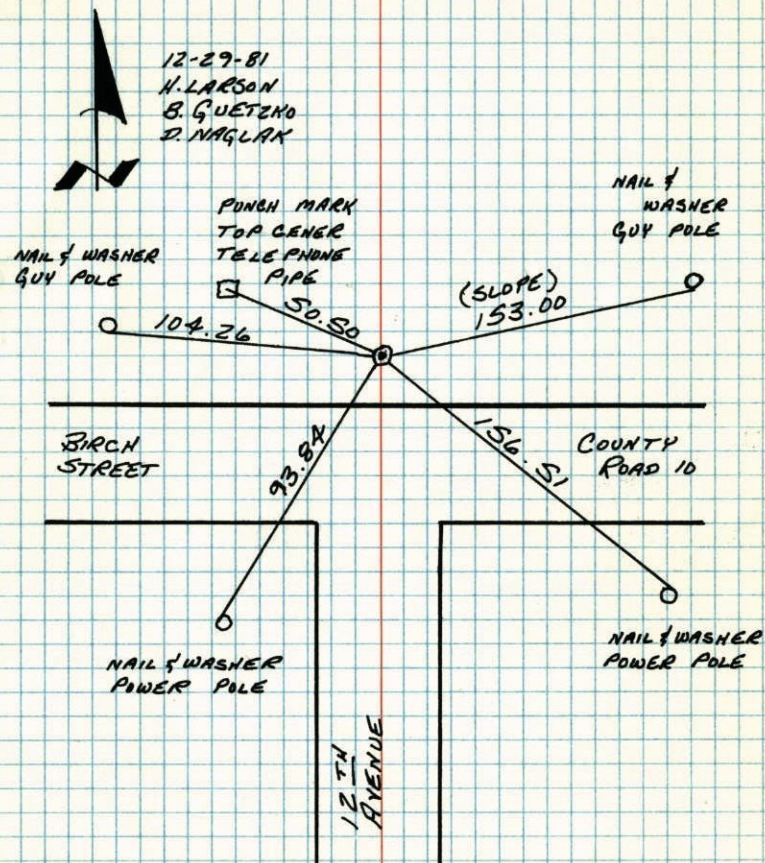 12-29-81
H. LARSON
B. GUETZKO
D. NAGLAK
NAIL &
WASHER
GUY POLE
PUNCH MARK
TOP CENER
TELEPHONE
PIPE
NAIL & WASHER
GUY POLE
(SLOPE)
153.00
50.50
104.26
BIRCH
STREET
93.84
156.51
COUNTY
ROAD 10
NAIL & WASHER
POWER POLE
NAIL & WASHER
POWER POLE
12TH
AVENUE